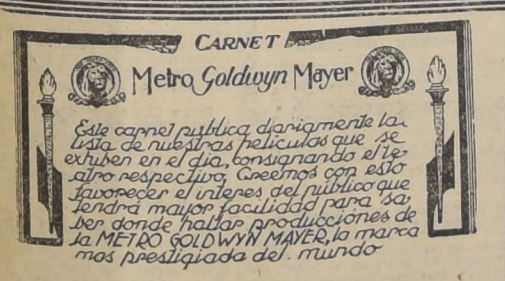 CARNET
Metro Goldwyn Mayer
Este carnet publica diariamente la
lista de nuestras peliculas que se
exhiben en el dia, consignando el te-
atro respectivo, Creemos con esto
favorecer el interes del publico que
tendrá mayor facilidad para sa-
ber donde hallar producciones de
la METRO GOLDWYN MAYER, la marca
mas prestigiada del. mundo